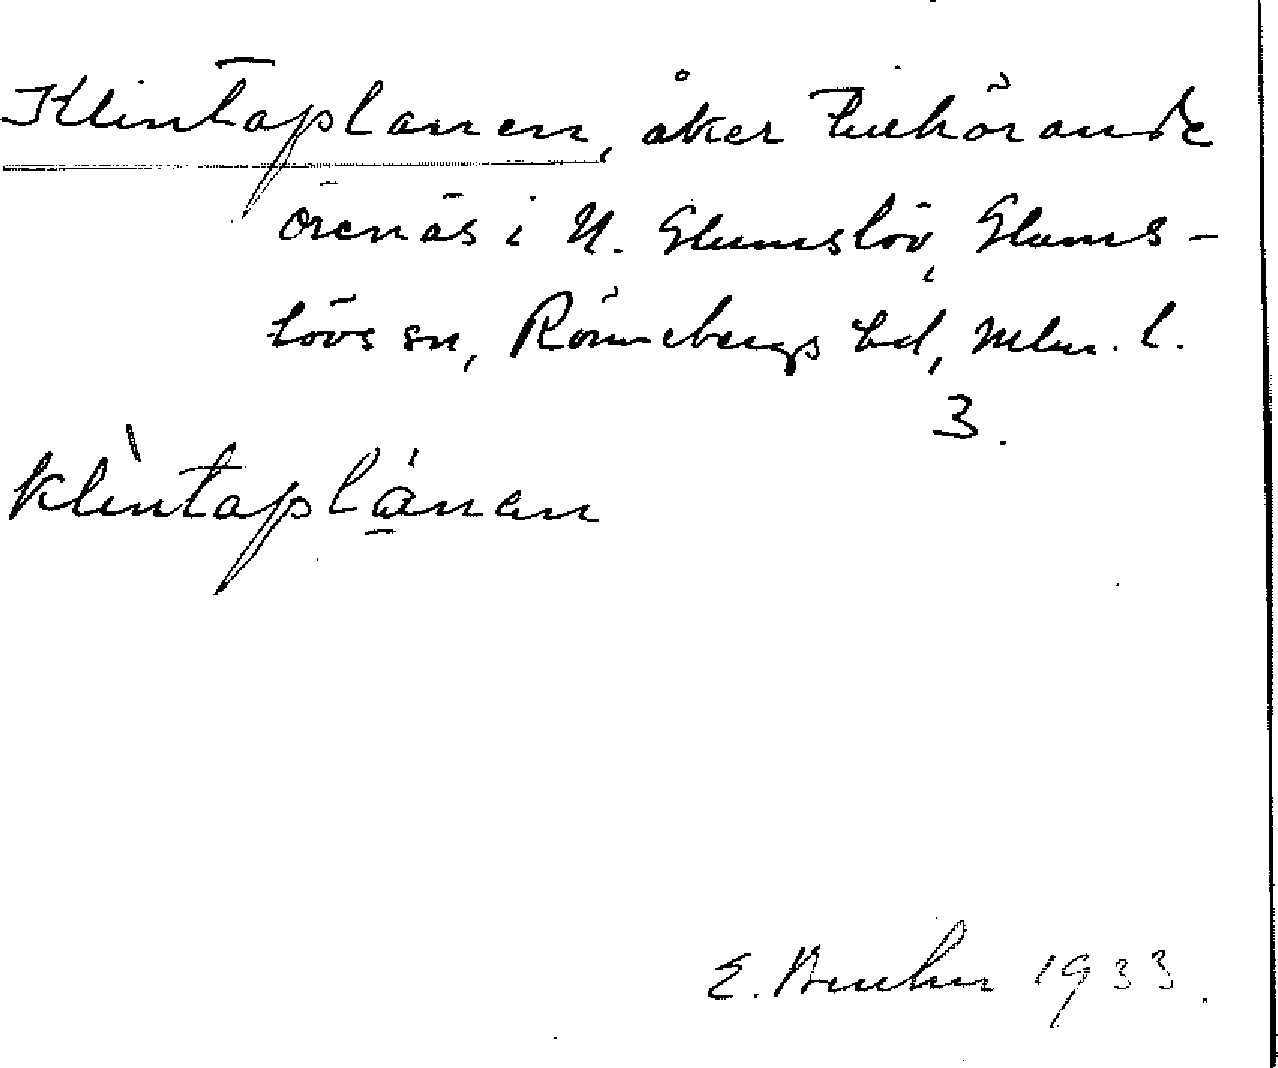 Klintaplanen, åker tillhörande
Örenäs i N. Glumslöv, Glums-
lövs sn, Rönnebergs hd, Mlm. l.
3.
klìntaplánen
E. 1933.